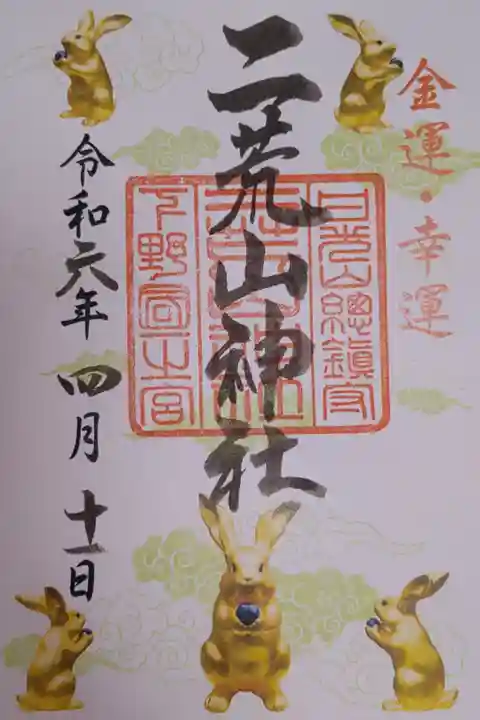 金運・幸運
二荒山神社
日光山總鎮守
二荒山神社
下野國一之宮
令和六年 四月 十一日